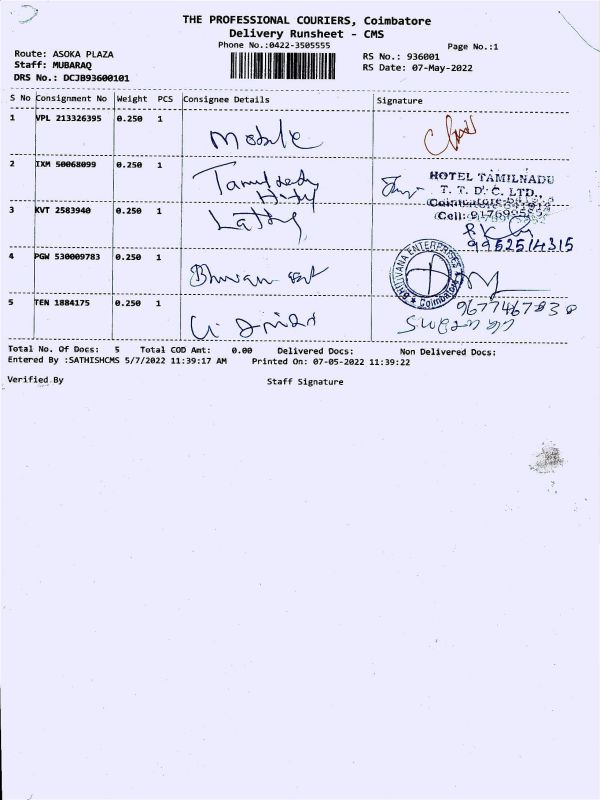 THE PROFESSIONAL COURIERS, Coimbatore
Delivery Runsheet - CMS
Phone No.:0422-3505555
Page No.:1
Route: ASOKA PLAZA
RS No.: 936001
Staff: MUBARAQ
RS Date: 07-May-2022
DRS No.: DCJB93600101
S No Consignment No Weight PCS Consignee Details Signature
1 VPL 213326395 0.250 1 Mobile
2 IXM 50068099 0.250 1
HOTEL TAMILNADU
T. T. D. C. LTD.,
3 KVT 2583940 0.250 1
Cell:
9952514315
4 PGW 530009783 0.250 1
BHUVANA ENTERPRISES
Coimbatore
5 TEN 1884175 0.250 1
9677467838
Total No. Of Docs: 5 Total COD Amt: 0.00 Delivered Docs: Non Delivered Docs:
Entered By :SATHISHCMS 5/7/2022 11:39:17 AM Printed On: 07-05-2022 11:39:22
Verified By Staff Signature